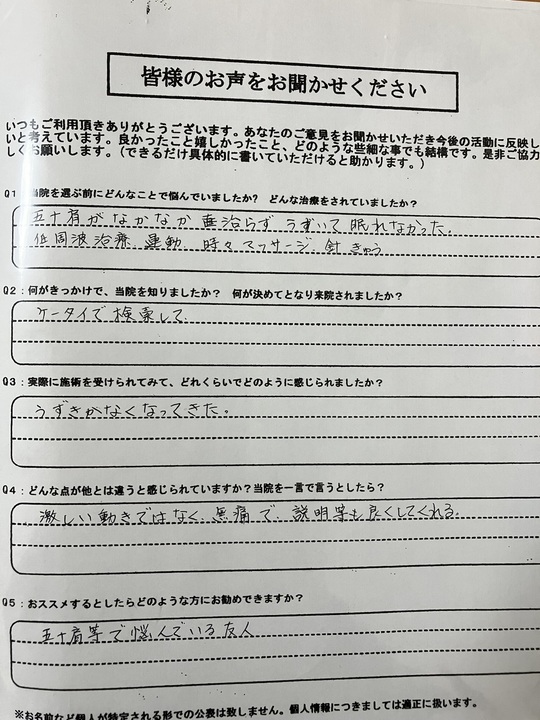 皆様のお声をお聞かせください
いつもご利用頂きありがとうございます。あなたのご意見をお聞かせいただき今後の活動に反映し
いと考えています。良かったこと嬉しかったこと、どのような些細な事でも結構です。是非ご協力
しくお願いします。(できるだけ具体的に書いていただけると助かります。)
Q1 当院を選ぶ前にどんなことで悩んでいましたか? どんな治療をされていましたか?
五十肩がなかなか 治らず うずいて 眠れなかった。
低周波治療 運動、時々マッサージ、針 きゅう
Q2:何がきっかけで、当院を知りましたか? 何が決めてとなり来院されましたか?
ケータイで検索して
Q3:実際に施術を受けられてみて、どれくらいでどのように感じられましたか?
うずきがなくなってきた。
Q4:どんな点が他とは違うと感じられていますか?当院を一言で言うとしたら?
激しい動きではなく、無痛で、説明等も良くしてくれる。
Q5:おススメするとしたらどのような方にお勧めできますか?
五十肩等で悩んでいる友人
※お名前など個人が特定される形での公表は致しません。個人情報につきましては適正に扱います。